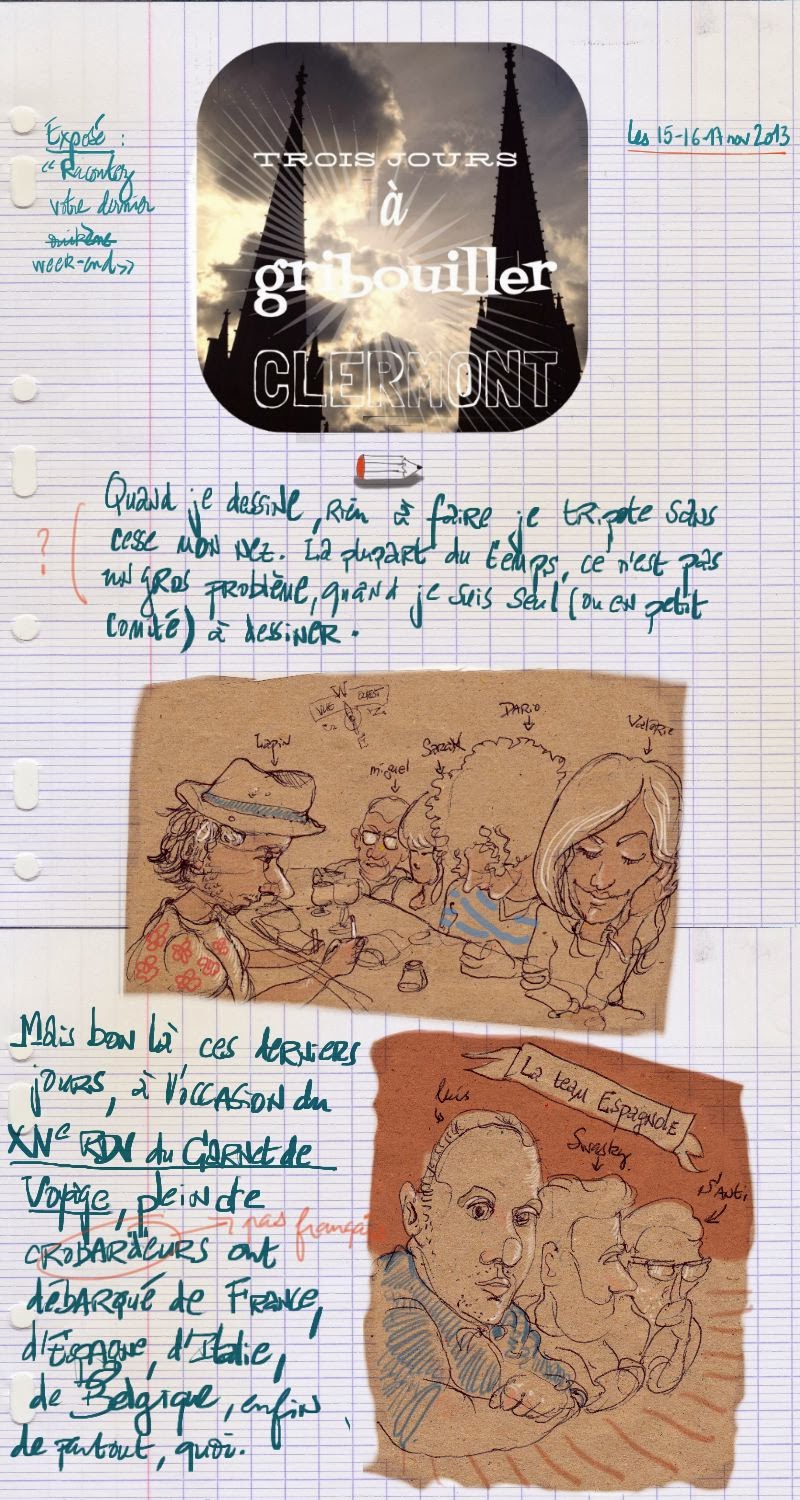 Exposé :
"Racontez
votre dernier
week-end"
Les 15-16-17 nov 2013
TROIS JOURS
à
gribouiller
CLERMONT
Quand je dessine, rien à faire je tripote sans
cesse mon nez. La plupart du temps, ce n'est pas
un gros problème, quand je suis seul (ou en petit
comité) à dessiner.
?
W
VUE OUEST
E
Lapin
miguel
Sarah
DARIO
Valérie
Mais bon là ces derniers
jours, à l'occasion du
XIVe RDV du Carnet de
Voyage, plein de
CROBARDEURS ont
pas français
débarqué de France,
d'Espagne, d'Italie,
de Belgique, enfin
de partout, quoi.
La team Espagnole
Luis
Swasky
Santi